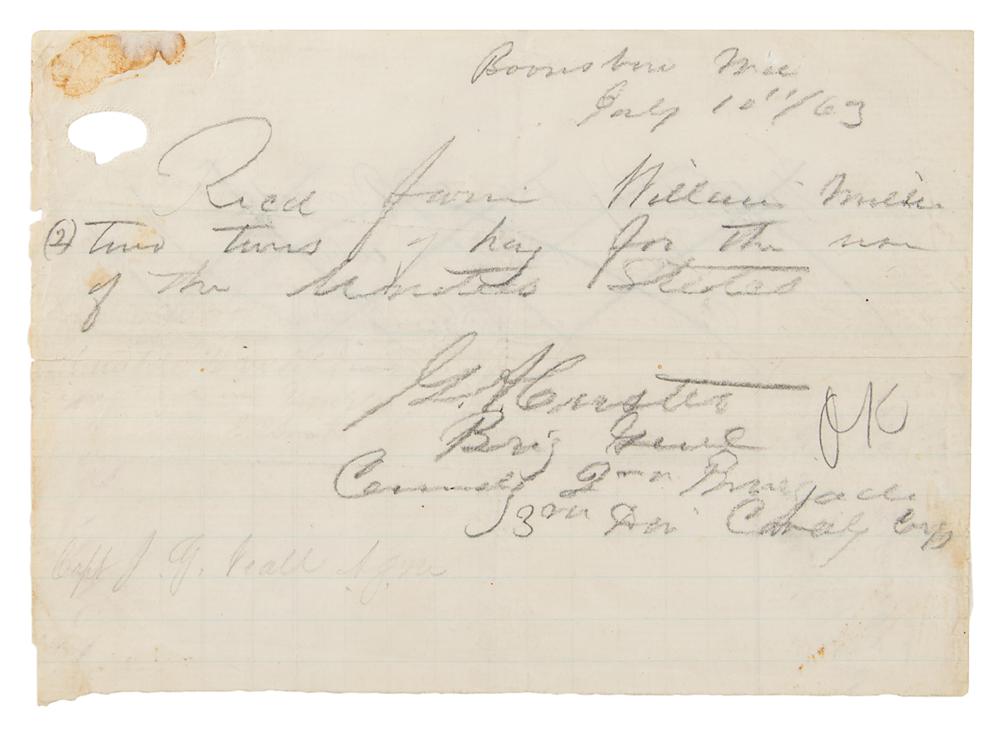 Boonsboro Md
July 10"/63
Recd from William Miller
(2) two tons of hay for the use
of the United States
G. A. Custer
Brig Genl OK
Comdg 2nd Brigade
3rd Div Cavaly Corps
Capt J. G.